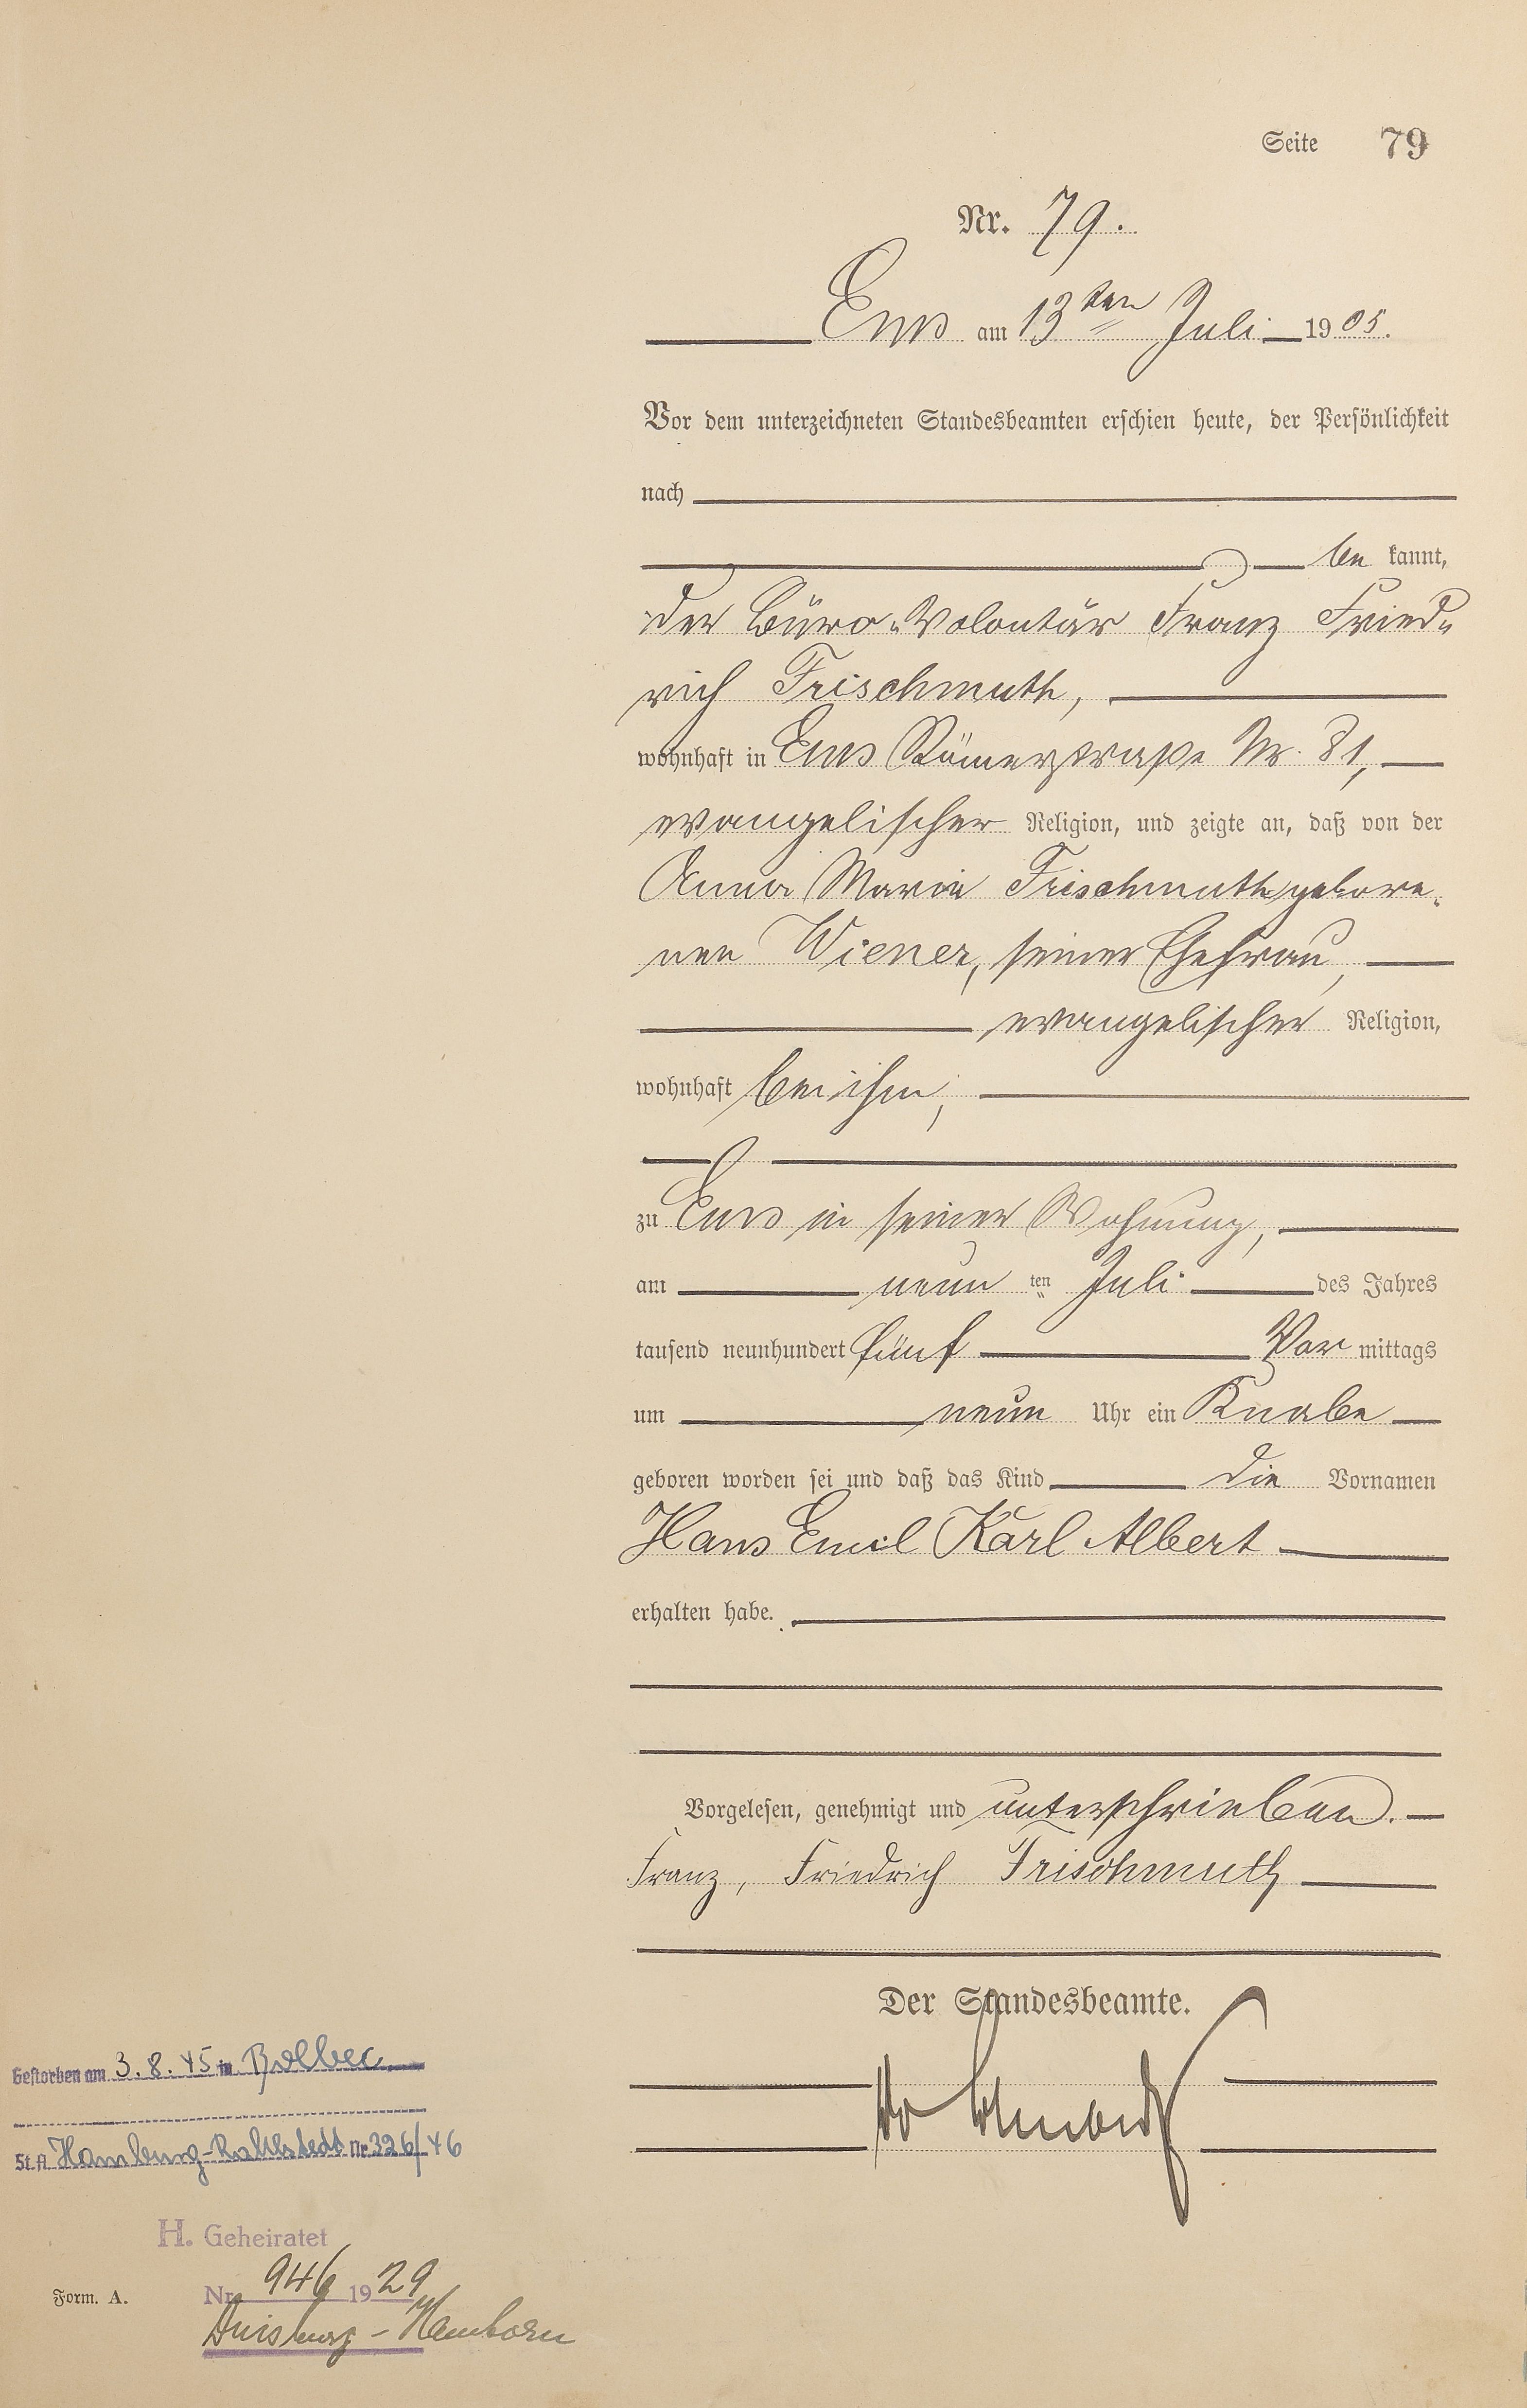 Seite 79
Nr. 79.
Ems am 13ten Juli 1905.
Vor dem unterzeichneten Standesbeamten erschien heute, der Persönlichkeit
nach
be kannt,
der Büro-Volontär Franz Fried-
rich Frischmuth,
wohnhaft in Ems Römerstraße Nr. 81,
evangelischer Religion, und zeigte an, daß von der
Anna Marie Frischmuth gebore-
nen Wiener, seiner Ehefrau,
evangelischer Religion,
wohnhaft bei ihm,
zu Ems in seiner Wohnung,
am neun ten Juli des Jahres
tausend neunhundert fünf Vor mittags
um neun Uhr ein Knabe
geboren worden sei und daß das Kind die Vornamen
Hans Emil Karl Albert
erhalten habe.
Vorgelesen, genehmigt und unterschrieben.
Franz, Friedrich Frischmuth
Der Standesbeamte.
Gestorben am 3.8.45 in Bolbec
St.A Hamburg-Rahlstedt Nr. 326/46
H. Geheiratet
Nr. 946 1929
Duisburg-Hamborn
Form. A.